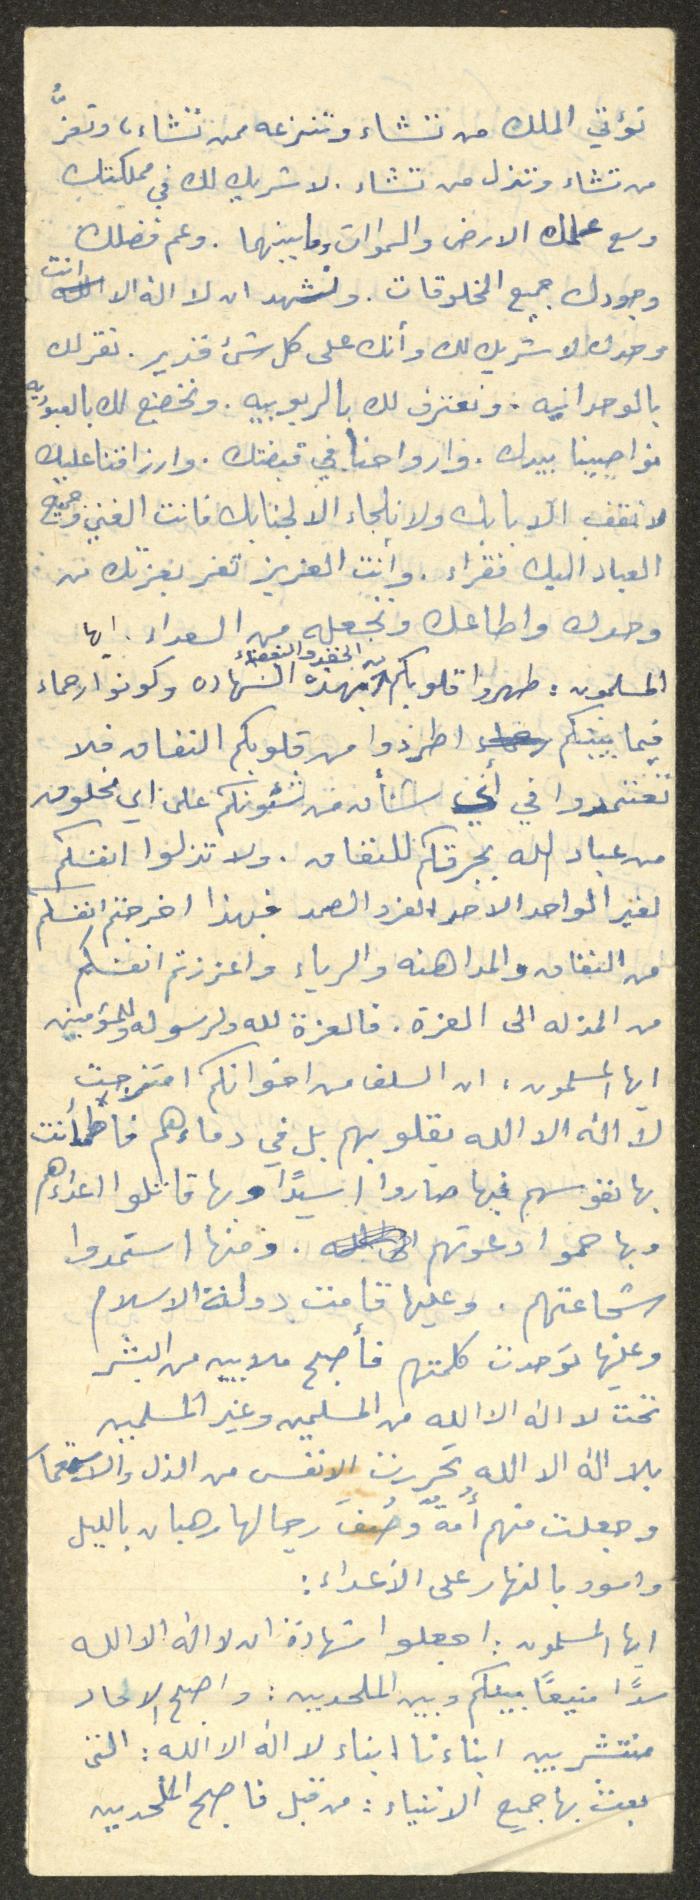 تؤتي الملك من تشاء وتنزعه ممن تشاء، وتعزُّ
من تشاء وتذل من تشاء. لا شريك لك في مملكتك
وسع علمك الارض والسموات وما بينهما. وعم فضلك
وجودك جميع المخلوقات. ونشهد ان لا اله الا انت
وحدك لا شريك لك وأنك على كل شئ قدير. نقر لك
بالوحدانيه. ونعترف لك بالربوبيه. ونخضع لك بالعبوديه
نواصينا بيدك. وارواحنا في قبضتك. وارزاقنا عليك
لا نقف الا ببابك ولا نلجاء الا لجنابك فانت الغني وجميع
العباد اليك فقراء. وأنت العزيز تعز بعزتك من
وحدك واطاعك وتجعله من السعداء. ايها
المسلمون: طهروا قلوبكم من الحقد والبغضاء بهذه الشهاده وكونوا رحماء
فيما بينكم اطردوا من قلوبكم النفاق فلا
تعتمدوا في أي شأن من شئونكم على اي مخلوق
من عباد الله يجرقكم للنفاق. ولا تذلوا انفسكم
لغير الواحد الاحد الفرد الصمد فبهذا اخرجتم انفسكم
من النفاق والمداهنه والرياء واعززتم انفسكم
من المذله الى العزة. فالعزة لله ولرسوله وللمؤمنين
ايها المسلمون، ان السلف من اخوانكم امتزجت
لا اله الا الله بقلوبهم بل في دماءهم فاطمأنت
بها نفوسهم فبها صاروا اسيدًا وبها قاتلوا اعداءهم
وبها حموا دعوتهم. ومنها استمدوا
شجاعتهم. وعليها قامت دولة الاسلام
وعليها توحدت كلمتهم فأصبح ملايين من البشر
تحت لا اله الا الله من المسلمين وغير المسلمين
بلا اله الا الله تحررت الانفس من الذل والاستعمار
وجعلت منهم أُمةٌ وصُفَ رجالها رهبان بالليل
واسود بالنهار على الأعداء:
ايها المسلمون: اجعلوا شهادة ان لا اله الا الله
سدًا منيعًا بينكم وبين الملحدين: واصبح الالحاد
منتشر بين ابناءنا ابناء لا اله الا الله: التى
بعث بها جميع الانبياء: من قبل فاصبح الملحدين